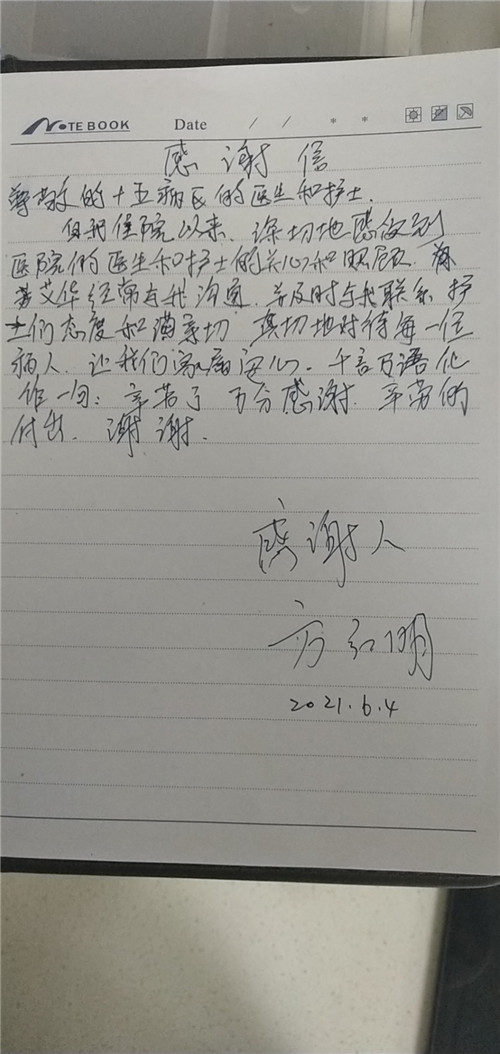 NOTEBOOK Date / /
感谢信
尊敬的十五病区的医生和护士.
住院以来、深切地感受到
医院的医生和护士的关心和照顾.
艾华经常与我沟通、并及时与我联系 护
士们态度和蔼亲切 真切地对待每一位
病人、让我们家属安心. 千言万语化
作一句: 辛苦了 万分感谢. 辛劳的
付出. 谢谢.
感谢人
方红明
2021.6.4